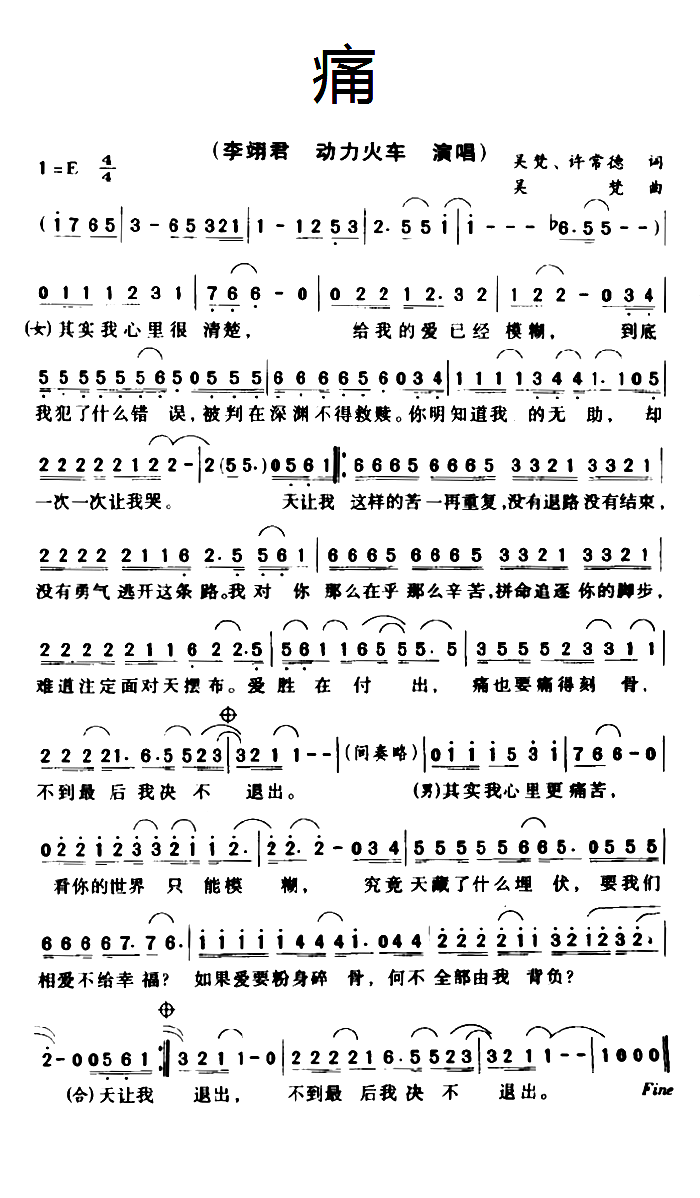 痛
(李翊君 动力火车 演唱)
1=E 4/4
吴梵、许常德 词
吴 梵 曲
(i 7 6 5 | 3 - 6 5 3 2 1 | 1 - 1 2 5 3 | 2. 5 5 i | i - - - ♭6. 5 5 - - )
0 1 1 1 1 2 3 1 | 7 6 6 - 0 | 0 2 2 1 2. 3 2 | 1 2 2 - 0 3 4 |
(女)其实我心里很 清楚, 给我的爱已经 模糊, 到底
5 5 5 5 5 5 6 5 0 5 5 5 | 6 6 6 6 5 6 0 3 4 | 1 1 1 1 3 4 4 1. 1 0 5 |
我犯了什么错 误,被判在深渊不得救赎。你明知道我 的无助, 却
2 2 2 2 2 1 2 2 - | 2 (5 5.) 0 5 6 1 |: 6 6 6 5 6 6 6 5 3 3 2 1 3 3 2 1 |
一次一次让我哭。 天让我 这样的苦一再重复,没有退路没有结束,
2 2 2 2 2 1 1 6 2. 5 5 6 1 | 6 6 6 5 6 6 6 5 3 3 2 1 3 3 2 1 |
没有勇气逃开这条 路。我对 你 那么在乎那么辛苦,拼命追逐你的脚步,
2 2 2 2 2 1 1 6 2 2. 5 | 5 6 1 1 6 5 5 5. 5 | 3 5 5 5 2 3 3 1 1 |
难道注定面对天摆 布。爱 胜 在 付 出, 痛也要痛得刻 骨,
2 2 2 2 1. 6. 5 5 2 3 | 3 2 1 1 - - | (间奏略) | 0 i i i 5 3 i | 7 6 6 - 0
不到最 后我决 不 退出。 (男)其实我心里更痛苦,
0 2 2 1 2 3 3 2 1 2. | 2 2. 2 - 0 3 4 | 5 5 5 5 5 6 6 5. 0 5 5 5 |
看你的世界 只 能模 糊, 究竟天藏了什么埋 伏, 要我们
6 6 6 6 7. 7 6. | i i i i i 4 4 4 1. 0 4 4 | 2 2 2 2 i i 3 2 i 2 3 2. |
相爱不给幸福? 如果爱要粉身碎 骨, 何不全部由我 背负?
2 - 0 0 5 6 1 :| 3 2 1 1 - 0 | 2 2 2 2 1 6. 5 5 2 3 | 3 2 1 1 - - | 1 0 0 0 ‖
(合)天让我 退出, 不到最 后我决 不 退出。 Fine